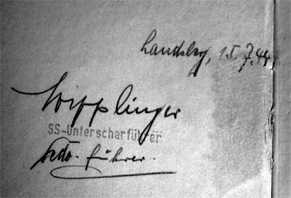 Landsbg, 15.7.44
Wipplinger
SS-Unterscharführer
Kdo.-führer.